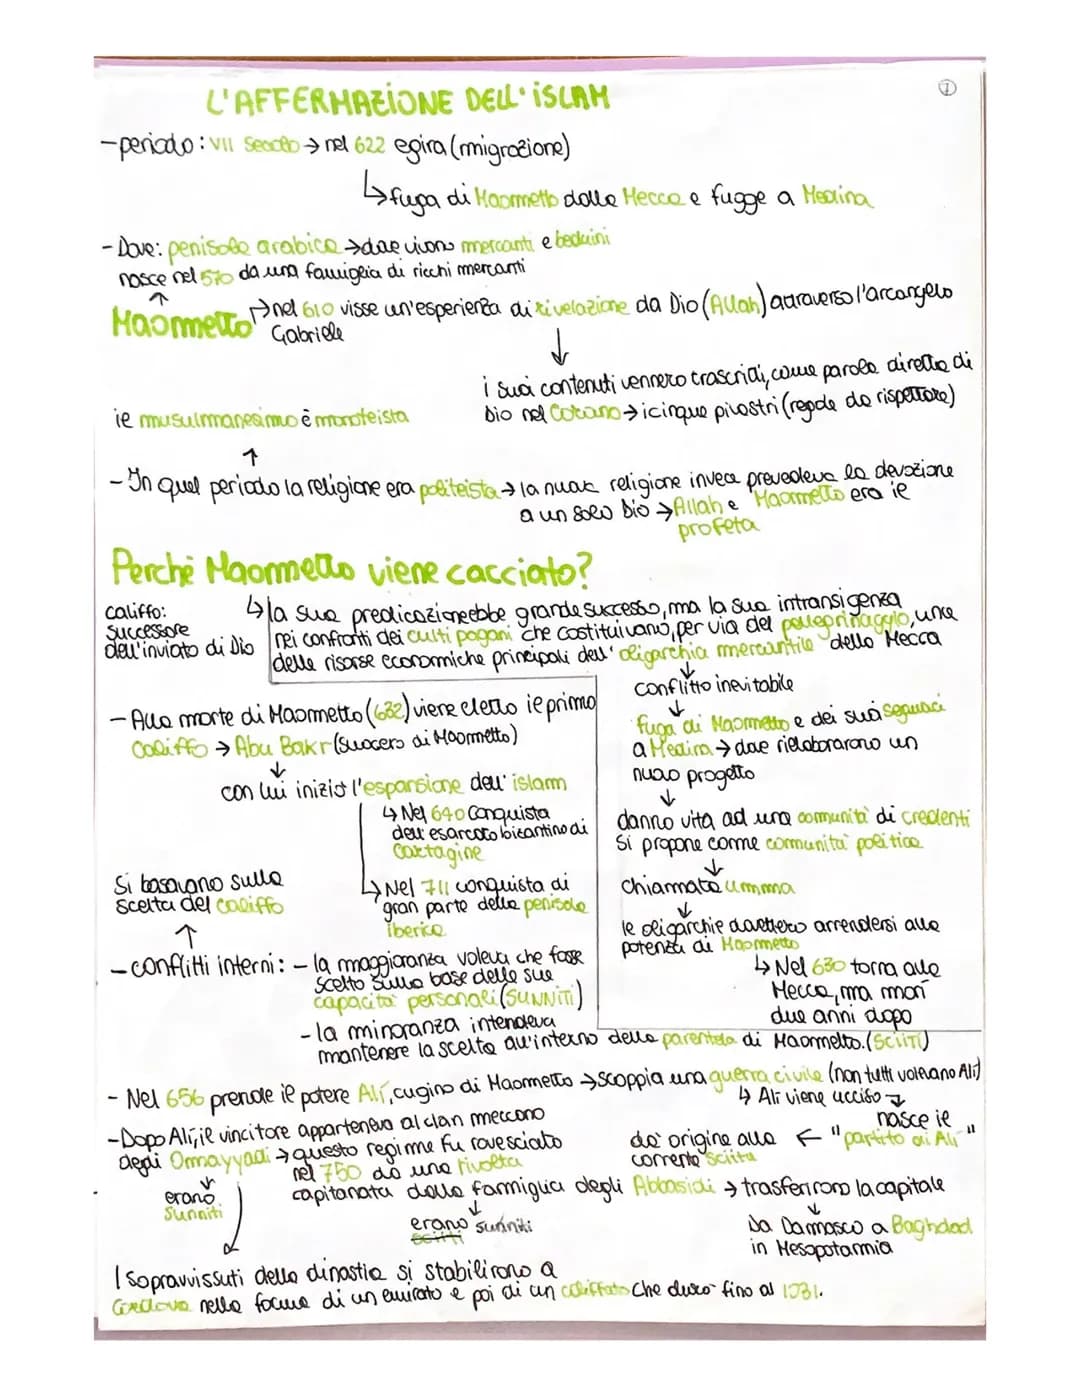 L'AFFERMAZIONE DELL'ISLAM
1
-periodo: VII Secolo → nel 622 egira (migrazione)
↳ fuga di Maometto dalla Mecca e fugge a Medina
- Dove: penisola arabica → dove vivono mercanti e beduini
nasce nel 570 da una famiglia di ricchi mercanti
Maometto → nel 610 visse un'esperienza di rivelazione da Dio (Allah) attraverso l'arcangelo
Gabriele
i suoi contenuti vennero trascritti, come parola diretta di
Dio nel Corano → i cinque pilastri (regole da rispettare)
il musulmanesimo è monoteista
- In quel periodo la religione era politeista → la nuova religione invece prevedeva la devozione
a un solo Dio → Allah e Maometto era il
profeta
Perché Maometto viene cacciato?
califfo:
successore
dell'inviato di Dio
↳ la sua predicazione ebbe grande successo, ma la sua intransigenza
nei confronti dei culti pagani che costituivano, per via del pellegrinaggio, una
delle risorse economiche principali dell'oligarchia mercantile della Mecca
conflitto inevitabile
fuga di Maometto e dei suoi seguaci
a Medina → dove rielaborarono un
nuovo progetto
danno vita ad una comunità di credenti
si propone come comunità politica
chiamata umma
le oligarchie dovettero arrendersi alla
potenza di Maometto
↳ Nel 630 torna alla
Mecca, ma morì
due anni dopo
- Alla morte di Maometto (632) viene eletto il primo
Califfo → Abu Bakr (suocero di Maometto)
con lui iniziò l'espansione dell'islam
↳ Nel 640 conquista
dell'esarcato bizantino di
Cartagine
↳ Nel 711 conquista di
gran parte della penisola
iberica
Si basavano sulla
scelta del califfo
- conflitti interni: - la maggioranza voleva che fosse
scelto sulla base delle sue
capacità personali (SUNNITI)
- la minoranza intendeva
mantenere la scelta all'interno della parentela di Maometto. (SCIITI)
- Nel 656 prende il potere Alì, cugino di Maometto → scoppia una guerra civile (non tutti volevano Alì)
↳ Alì viene ucciso
nasce il
"partito di Alì"
dà origine alla
corrente sciita
- Dopo Alì, il vincitore apparteneva al clan meccano
degli Ommayyadi → questo regime fu rovesciato
nel 750 da una rivolta
capitanata dalla famiglia degli Abbasidi → trasferirono la capitale
erano
Sunniti
erano sunniti
sciiti
Da Damasco a Baghdad
in Mesopotamia
I sopravvissuti della dinastia si stabilirono a
Cordova nella forma di un emirato e poi di un califfato che durò fino al 1031.